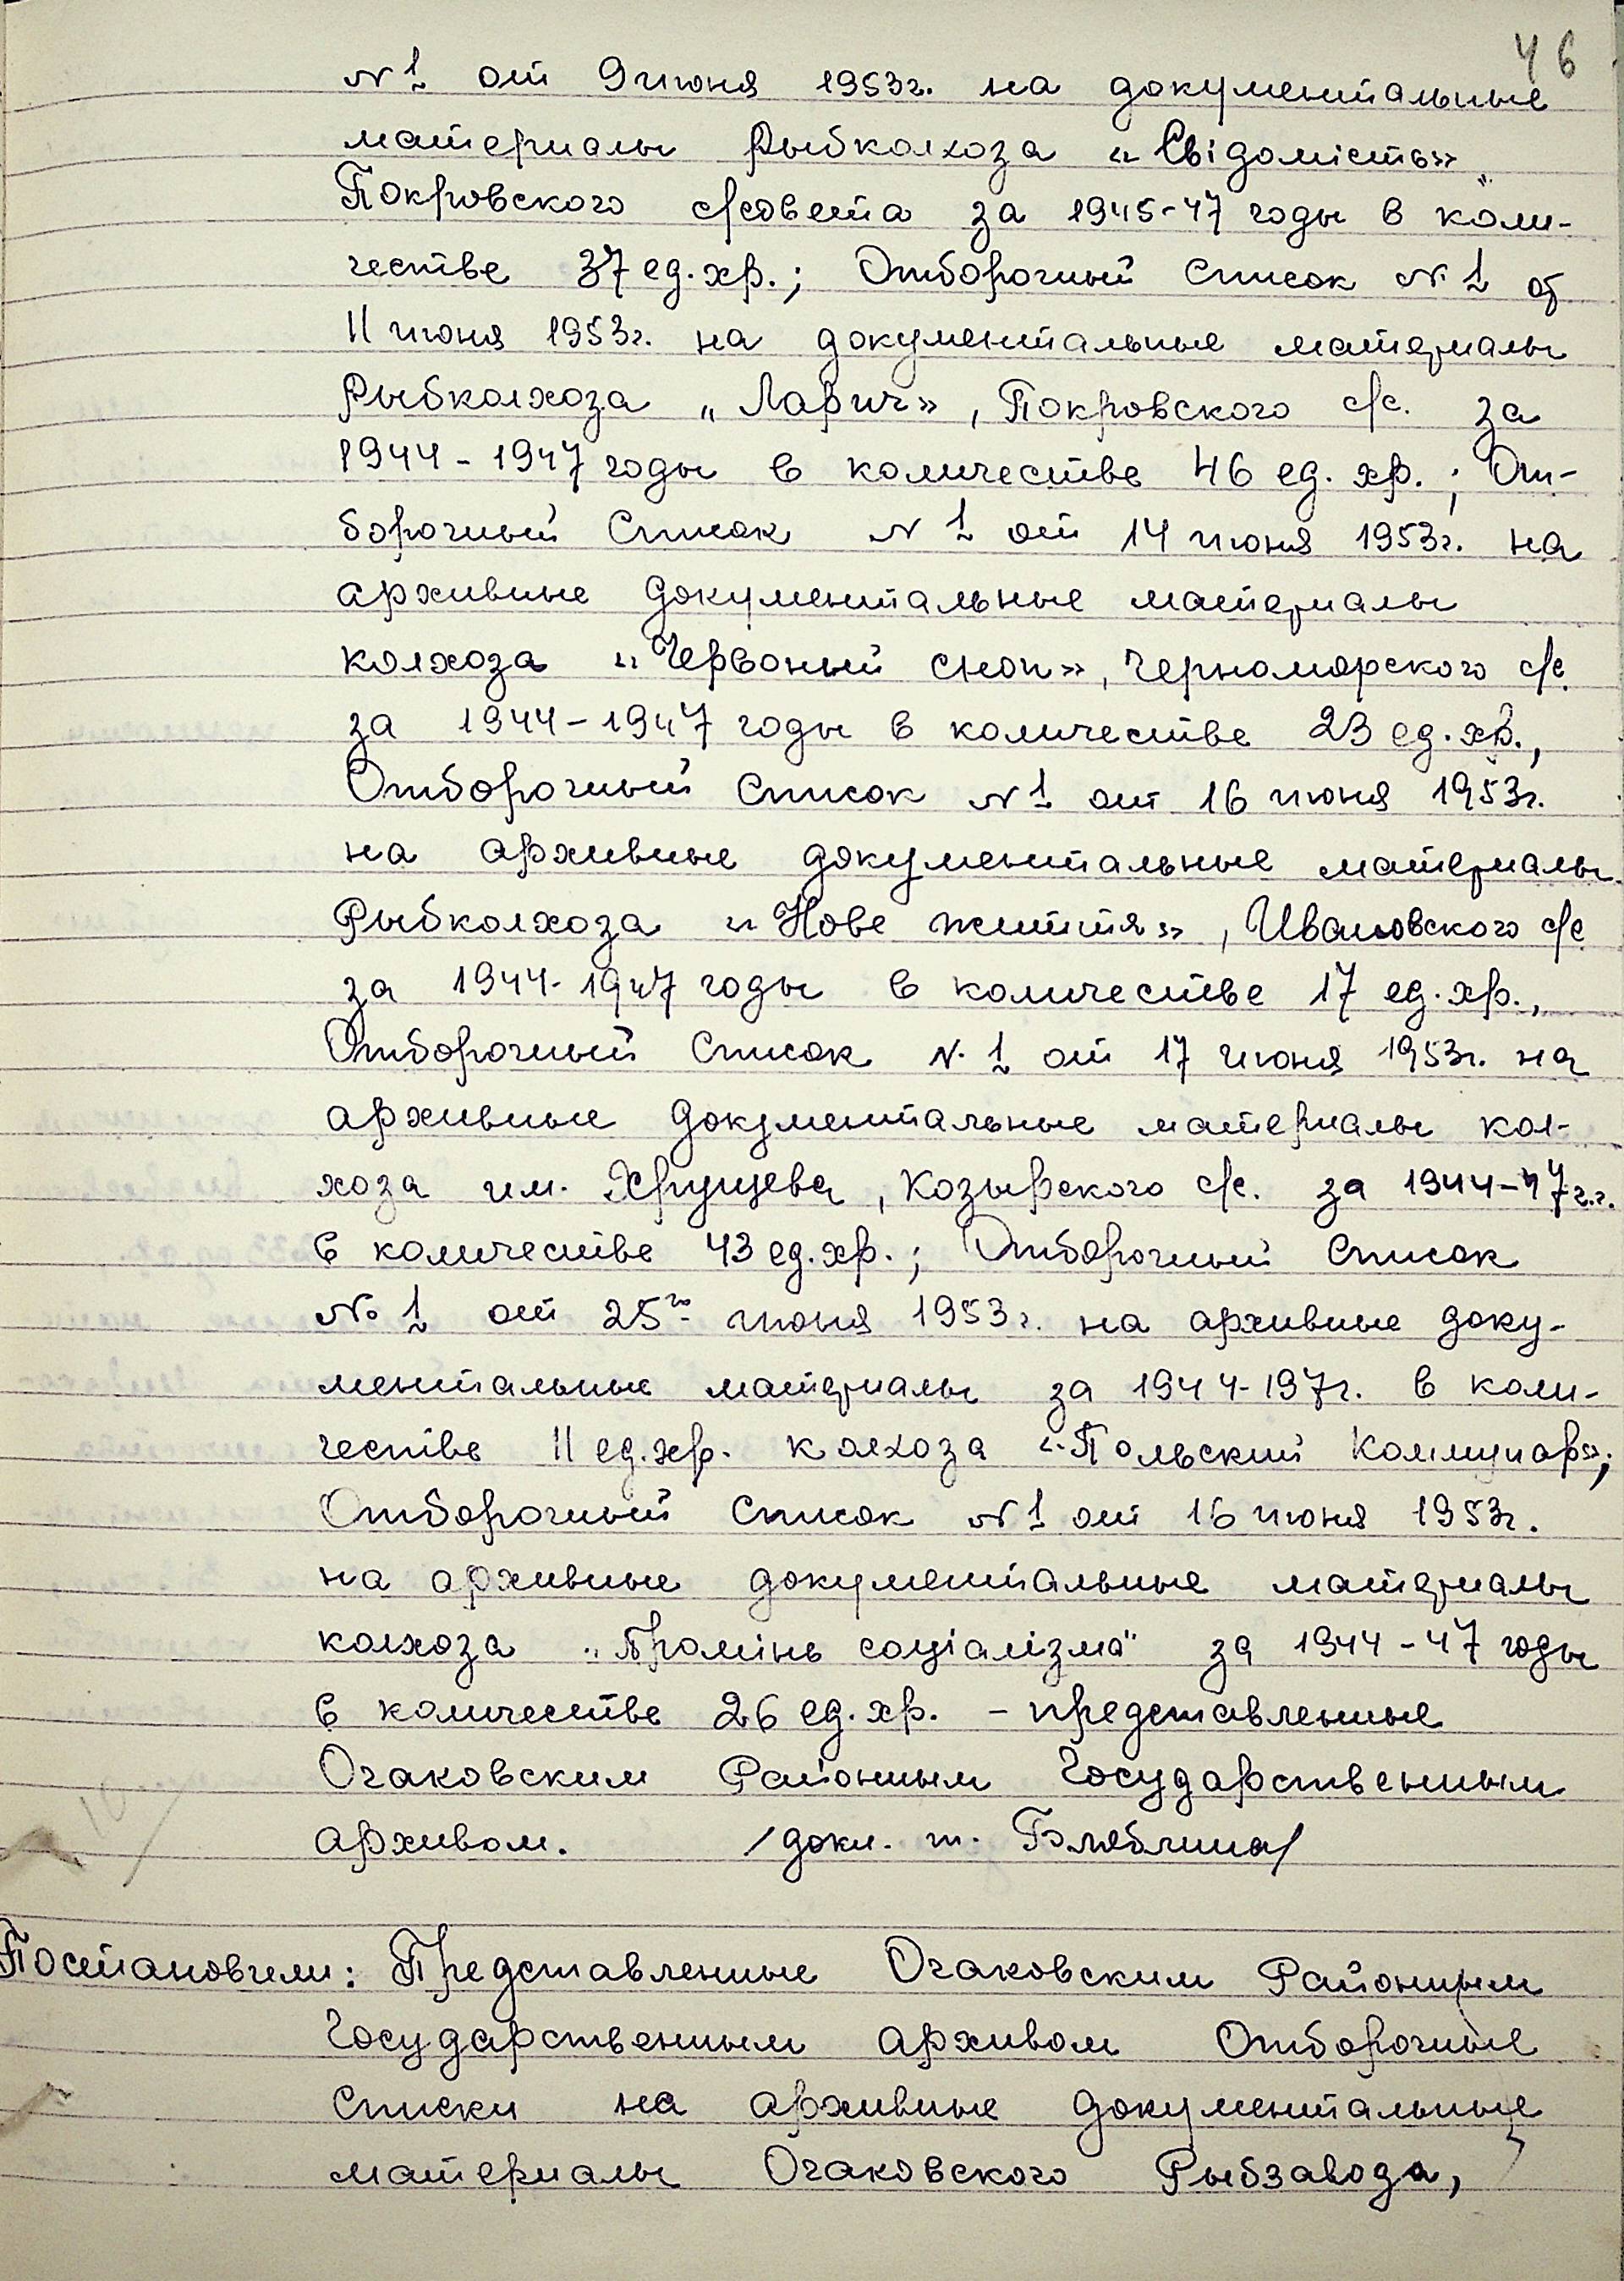 46
№ 1 от 9 июня 1953г. на документальные
материалы Рыбколхоза «Свідомість»
Покровского с/совета за 1945-47 годы в коли-
честве 37 ед. хр.; Отборочный Список № 1 от
11 июня 1953г. на документальные материалы
Рыбколхоза „Ларич», Покровского с/с. за
1944-1947 годы в количестве 46 ед. хр.; От-
борочный Список № 1 от 14 июня 1953г. на
архивные документальные материалы
колхоза «Червоный сноп», Черноморского с/с.
за 1944-1947 годы в количестве 23 ед. хр.,
Отборочный Список № 1 от 16 июня 1953г.
на архивные документальные материалы
Рыбколхоза «Нове життя», Ивановского с/с
за 1944-1947 годы в количестве 17 ед. хр.,
Отборочный Список № 1 от 17 июня 1953г. на
архивные документальные материалы кол-
хоза им. Хрущева, Козырского с/с. за 1944-47г.г.
в количестве 43 ед. хр.; Отборочный Список
№ 1 от 25го июня 1953г. на архивные доку-
ментальные материалы за 1944-197г. в коли-
честве 11 ед. хр. колхоза «Польский Коммунар»;
Отборочный Список № 1 от 16 июня 1953г.
на архивные документальные материалы
колхоза „Промінь соціалізма" за 1944-47 годы
в количестве 26 ед. хр. - представленные
Очаковским Районным Государственным
архивом. /докл. т.
Постановили: Представленные Очаковским Районным
Государственным архивом Отборочные
списки на архивные документальные
материалы Очаковского Рыбзавода,